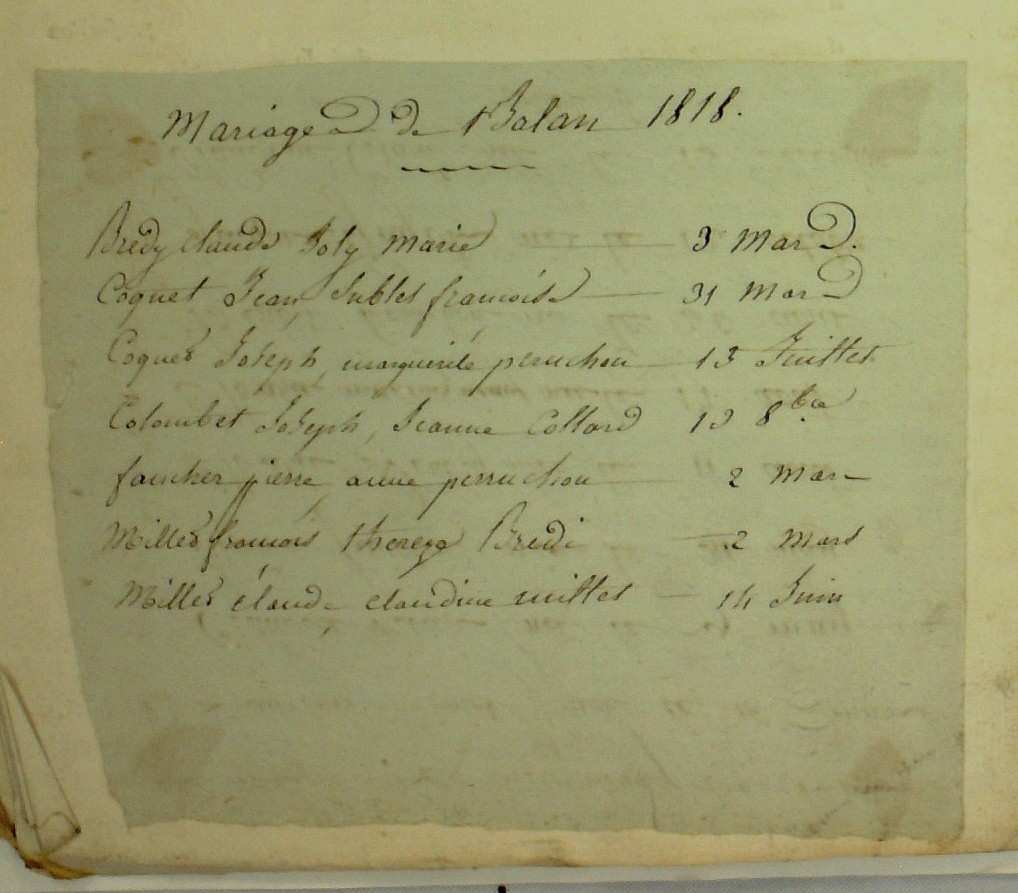 Mariages de Balan 1818.
Bredy claude Joly Marie 3 Mars.
Coquet Jean, Sublet francoise 31 Mars
Coquet Joseph, marguerite peruchon 13 Juillet
Colombet Joseph, Jeanne Collard 13 8bre
faucher pierre, anne perruchon 2 Mars
Millet francois thereze Bredi 2 Mars
Millet claude claudine millet 14 Juin